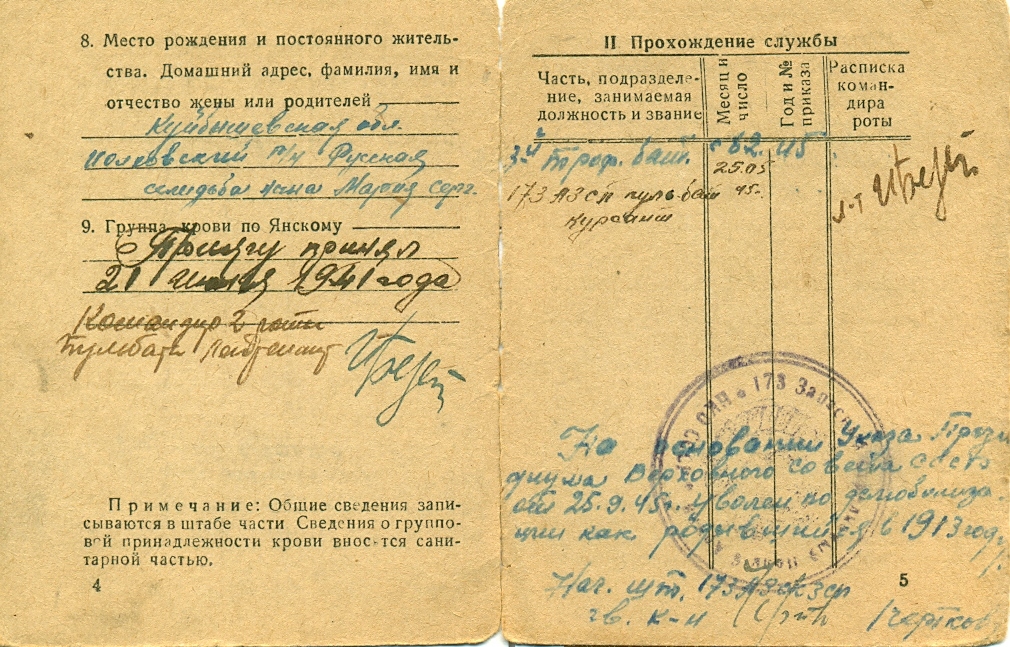 8. Место рождения и постоянного житель-
ства. Домашний адрес, фамилия, имя и
отчество жены или родителей
Куйбышевская обл.
р/н Русская
селидьба Мария Серг.
9. Группа крови по Янскому
Присягу принял
21 1941 года
Командир 2 роты
Пульбата Лейтенант
Примечание: Общие сведения запи-
сываются в штабе части Сведения о группо-
вой принадлежности крови вносятся сани-
тарной частью.
4
II Прохождение службы
Часть, подразделе-
ние, занимаемая
должность и звание
Месяц и
число
Год и №
приказа
Расписка
коман-
дира
роты
3-й бат. 45
25.05
173 АЗСП пульбат 45г.
курсант
л-т
173 Запасн
На основании Указа Прези
диума Верховного Совета СССР
от 25.9.45г. Уволен по демобилиза-
ции как родившийся в 1913 году.
Нач. шт. 173
гв. к-н
5